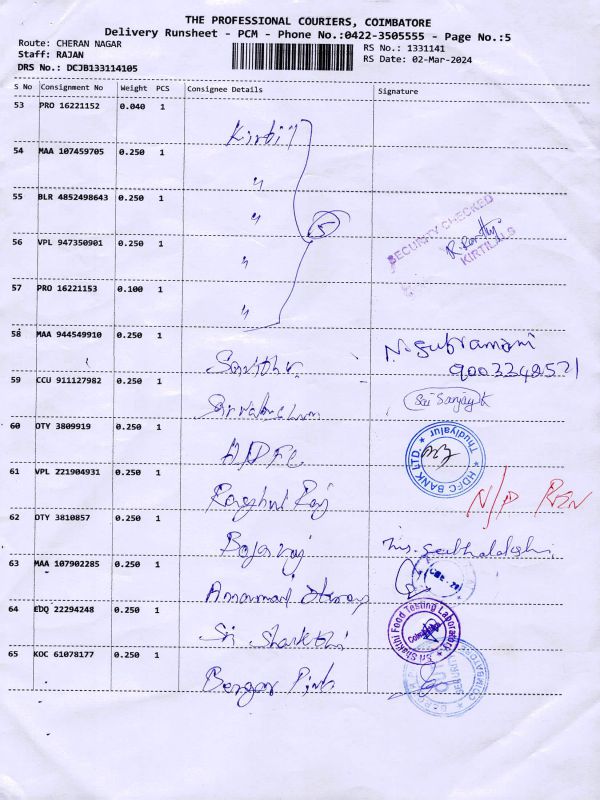 THE PROFESSIONAL COURIERS, COIMBATORE
Delivery Runsheet - PCM - Phone No.:0422-3505555 - Page No.:5
Route: CHERAN NAGAR
RS No.: 1331141
Staff: RAJAN
RS Date: 02-Mar-2024
DRS No.: DCJB133114105
S No Consignment No Weight PCS Consignee Details Signature
53 PRO 16221152 0.040 1
54 MAA 107459705 0.250 1
〃
55 BLR 4852498643 0.250 1 〃
5
SECURITY CHECKED
KIRTILALS
56 VPL 947350901 0.250 1
〃
57 PRO 16221153 0.100 1
〃
58 MAA 944549910 0.250 1
N. Subramani
9003348521
59 CCU 911127982 0.250 1
Sai Sanjay K
60 OTY 3809919 0.250 1
HDFC
HDFC BANK LTD. Thudiyalur
61 VPL Z21904931 0.250 1
Raghul Raj
N/P
62 OTY 3810857 0.250 1
63 MAA 107902285 0.250 1
64 EDQ 22294248 0.250 1
Sri Shakthi
Sri Shakthi Food Testing Laboratory
65 KOC 61078177 0.250 1